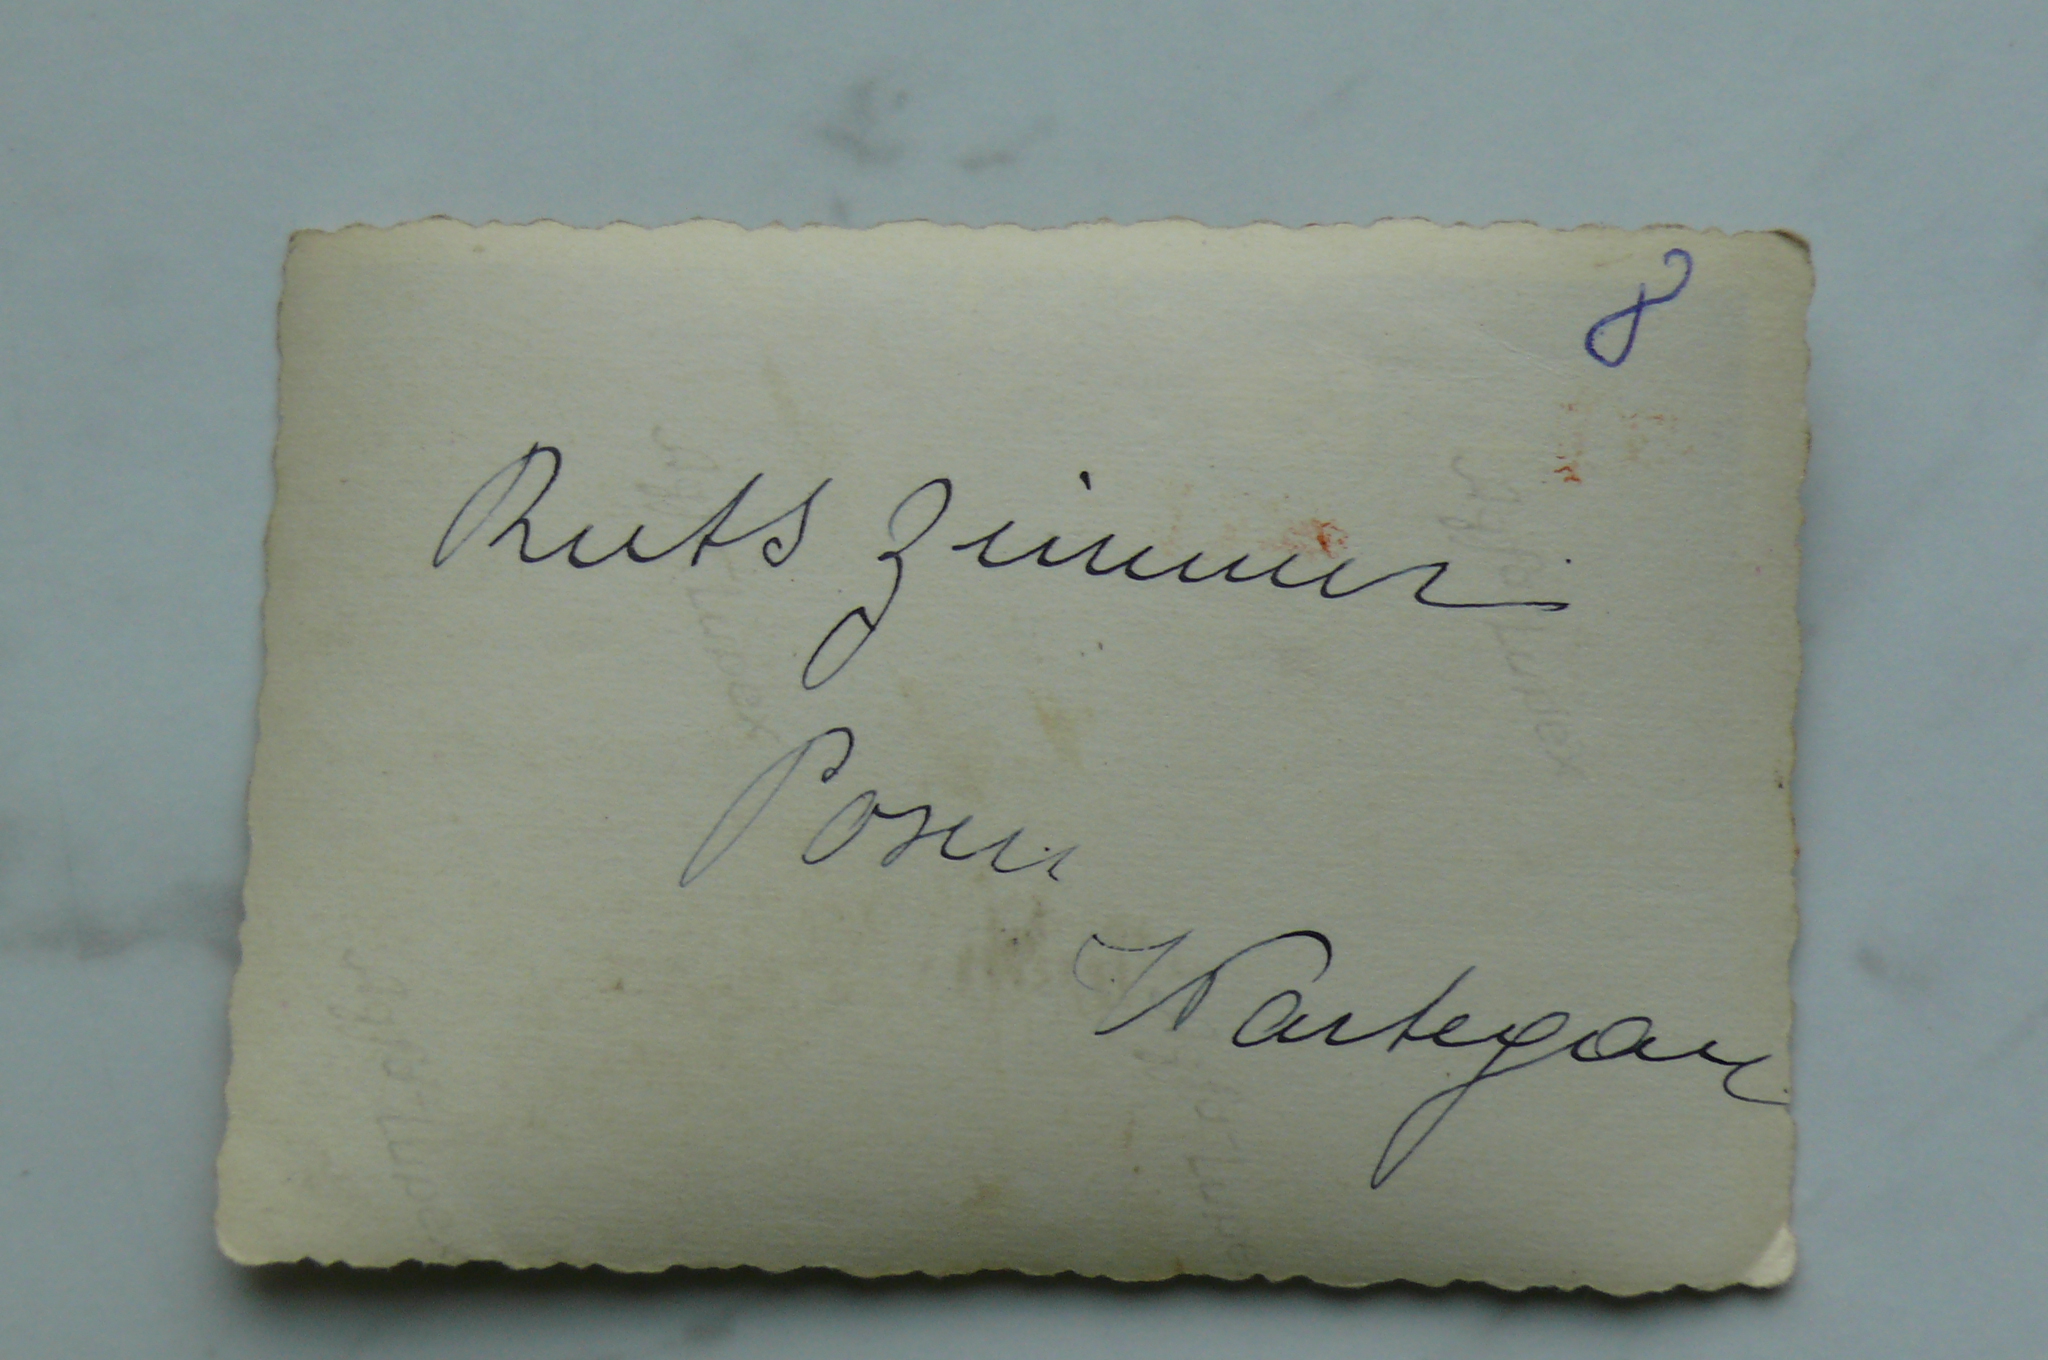 8
Ruts Zimmer
Posen
Wartegau